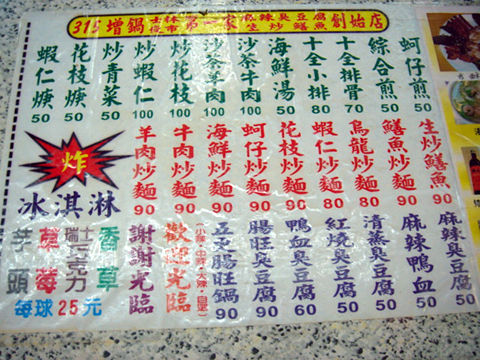 315增鍋 士林夜市 第一家 麻辣臭豆腐 生炒鱔魚 創始店
蚵仔煎 50
綜合煎 50
十全排骨 70
十全小排 80
海鮮湯 50
沙茶牛肉 100
沙茶羊肉 100
炒花枝 100
炒蝦仁 100
炒青菜 50
花枝焿 50
蝦仁焿 50
生炒鱔魚 90
鱔魚炒麵 90
烏龍炒麵 80
蝦仁炒麵 80
花枝炒麵 90
蚵仔炒麵 90
海鮮炒麵 90
牛肉炒麵 90
羊肉炒麵 90
麻辣臭豆腐 50
麻辣鴨血 50
清蒸臭豆腐 50
紅燒臭豆腐 60
鴨血臭豆腐 60
腸旺臭豆腐 90
五更腸旺鍋 90
歡迎光臨
謝謝光臨
炸
冰淇淋
香草
瑞士巧克力
草莓
芋頭
每球25元